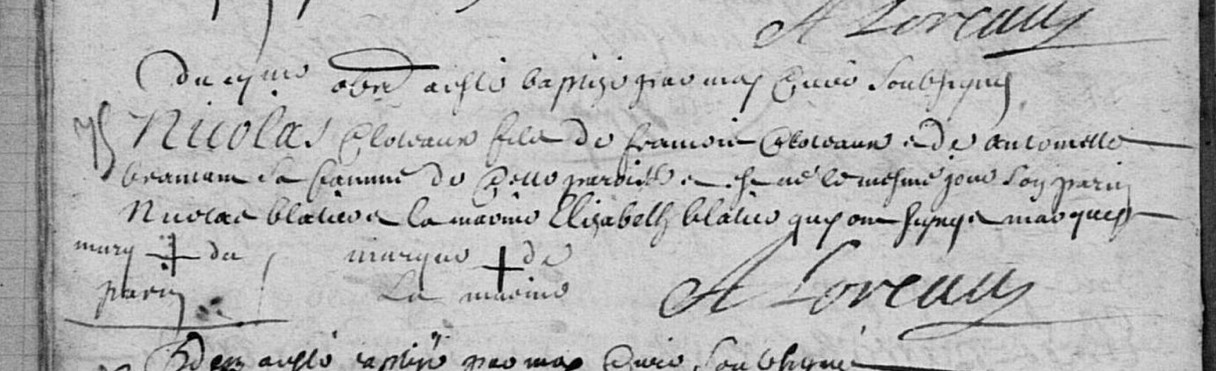 A Loreau
Du obre at esté baptizé par moy Curé soubsigné
Nicolas Cloteaux fils de francois Cloteaux e de antoinette
sa famme de Cette paroisse e est né le mesme jour son parin
Nicolas blatier e la marine Elizabeth blatier quy ont signé marques
marq + du marque + de
parin La marine
A Loreau
at esté baptizé par moy Curé soubsigné